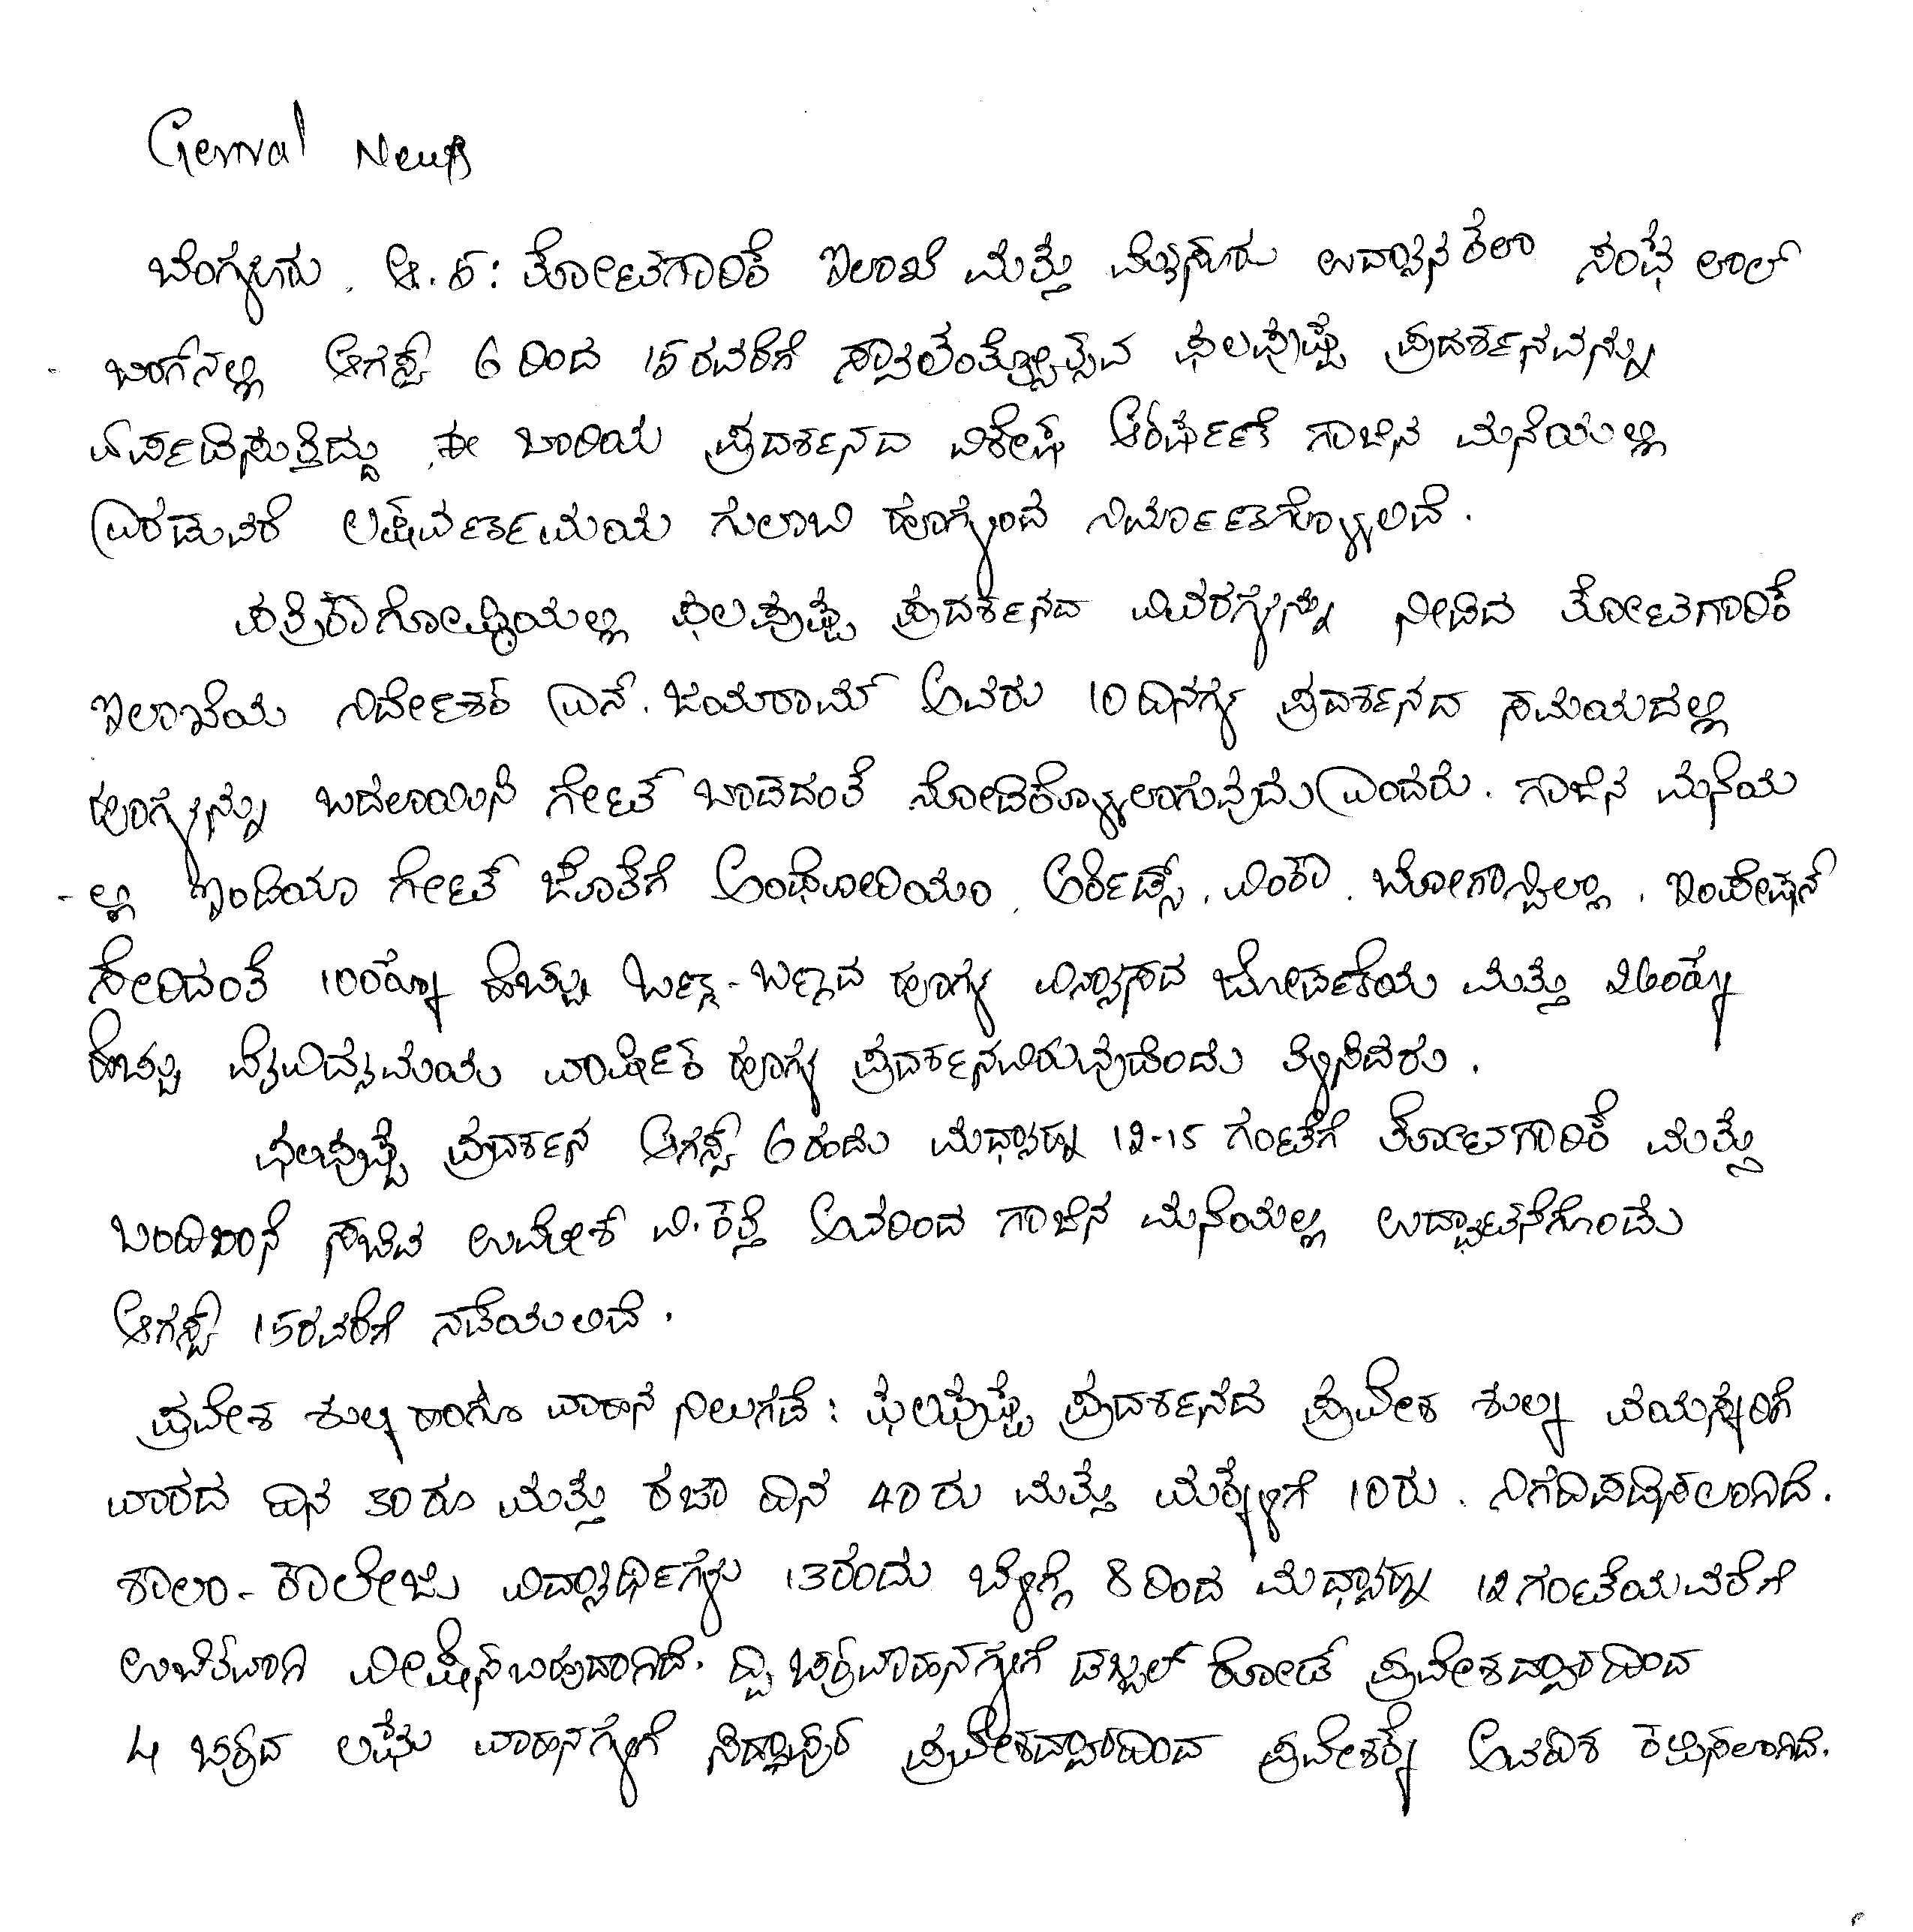 General News
ಬೆಂಗಳೂರು. ಆ. 5: ತೋಟಗಾರಿಕೆ ಇಲಾಖೆ ಮತ್ತು ಮೈಸೂರು ಉದ್ಯಾನ ಕಲಾ ಸಂಘ ಲಾಲ್
ಬಾಗ್‌ನಲ್ಲಿ ಆಗಸ್ಟ್ 6 ರಿಂದ 15 ರವರೆಗೆ ಸ್ವಾತಂತ್ರ್ಯೋತ್ಸವ ಫಲಪುಷ್ಪ ಪ್ರದರ್ಶನವನ್ನು
ಏರ್ಪಡಿಸುತ್ತಿದ್ದು, ಈ ಬಾರಿಯ ಪ್ರದರ್ಶನದ ವಿಶೇಷ ಆಕರ್ಷಣೆ ಗಾಜಿನ ಮನೆಯಲ್ಲಿ
ಎರಡುವರೆ ಲಕ್ಷ ವರ್ಣಮಯ ಗುಲಾಬಿ ಹೂಗಳಿಂದ ನಿರ್ಮಾಣಗೊಳ್ಳಲಿದೆ.
ಪತ್ರಿಕಾಗೋಷ್ಠಿಯಲ್ಲಿ ಫಲಪುಷ್ಪ ಪ್ರದರ್ಶನದ ವಿವರಗಳನ್ನು ನೀಡಿದ ತೋಟಗಾರಿಕೆ
ಇಲಾಖೆಯ ನಿರ್ದೇಶಕ ಎನ್. ಜಯರಾಮ್ ಅವರು 10 ದಿನಗಳ ಪ್ರದರ್ಶನದ ಸಮಯದಲ್ಲಿ
ಹೂಗಳನ್ನು ಬದಲಾಯಿಸಿ ಗೇಟ್ ಬಾಡದಂತೆ ನೋಡಿಕೊಳ್ಳಲಾಗುವುದು ಎಂದರು. ಗಾಜಿನ ಮನೆಯ
-ಲ್ಲಿ ಇಂಡಿಯಾ ಗೇಟ್ ಜೊತೆಗೆ ಅಂಥೋರಿಯಂ, ಆರ್ಕಿಡ್ಸ್, ವಿಂಕಾ, ಬೋಗಾನ್ವಿಲ್ಲಾ, ಇಂಪೇಷನ್
ಸೇರಿದಂತೆ 100ಕ್ಕೂ ಹೆಚ್ಚು ಬಣ್ಣ-ಬಣ್ಣದ ಹೂಗಳ ವಿನ್ಯಾಸದ ಜೋಡಣೆಯ ಮತ್ತು 260ಕ್ಕೂ
ಹೆಚ್ಚು ವೈವಿಧ್ಯಮಯ ವಾರ್ಷಿಕ ಹೂಗಳ ಪ್ರದರ್ಶನವಿರುವುದೆಂದು ತಿಳಿಸಿದರು.
ಫಲಪುಷ್ಪ ಪ್ರದರ್ಶನ ಆಗಸ್ಟ್ 6 ರಂದು ಮಧ್ಯಾಹ್ನ 12-15 ಗಂಟೆಗೆ ತೋಟಗಾರಿಕೆ ಮತ್ತು
ಬಂದಿಖಾನೆ ಸಚಿವ ಉಮೇಶ್ ವಿ. ಕತ್ತಿ ಅವರಿಂದ ಗಾಜಿನ ಮನೆಯಲ್ಲಿ ಉದ್ಘಾಟನೆಗೊಂಡು
ಆಗಸ್ಟ್ 15ರವರೆಗೆ ನಡೆಯಲಿದೆ.
ಪ್ರವೇಶ ಶುಲ್ಕ ಹಾಗೂ ವಾಹನ ನಿಲುಗಡೆ: ಫಲಪುಷ್ಪ ಪ್ರದರ್ಶನದ ಪ್ರವೇಶ ಶುಲ್ಕ ವಯಸ್ಕರಿಗೆ
ವಾರದ ದಿನ 30 ರೂ ಮತ್ತು ರಜಾ ದಿನ 40 ರು ಮತ್ತು ಮಕ್ಕಳಿಗೆ 10 ರು. ನಿಗದಿಪಡಿಸಲಾಗಿದೆ.
ಶಾಲಾ-ಕಾಲೇಜು ವಿದ್ಯಾರ್ಥಿಗಳು 13ರಂದು ಬೆಳಿಗ್ಗೆ 8 ರಿಂದ ಮಧ್ಯಾಹ್ನ 12 ಗಂಟೆಯವರೆಗೆ
ಉಚಿತವಾಗಿ ವೀಕ್ಷಿಸಬಹುದಾಗಿದೆ. ದ್ವಿ ಚಕ್ರವಾಹನಗಳಿಗೆ ಡಬ್ಬಲ್ ರೋಡ್ ಪ್ರವೇಶದ್ವಾರದಿಂದ
4 ಚಕ್ರದ ಲಘು ವಾಹನಗಳಿಗೆ ಸಿದ್ದಾಪುರ ಪ್ರವೇಶದ್ವಾರದಿಂದ ಪ್ರವೇಶಕ್ಕೆ ಅವಕಾಶ ಕಲ್ಪಿಸಲಾಗಿದೆ.